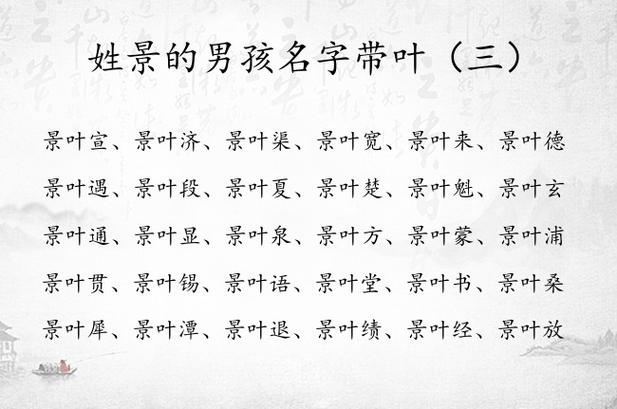 姓景的男孩名字带叶（三）
景叶宣、景叶济、景叶渠、景叶宽、景叶来、景叶德
景叶遇、景叶段、景叶夏、景叶楚、景叶魁、景叶玄
景叶通、景叶显、景叶泉、景叶方、景叶蒙、景叶浦
景叶贯、景叶锡、景叶语、景叶堂、景叶书、景叶桑
景叶犀、景叶潭、景叶退、景叶绩、景叶经、景叶放